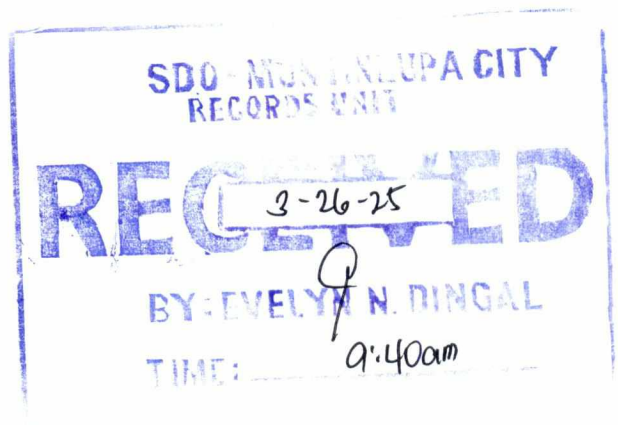 SDO - MUNTINLUPA CITY
RECORDS UNIT
RECEIVED
3-26-25
BY: EVELYN N. DINGAL
TIME: 9:40am